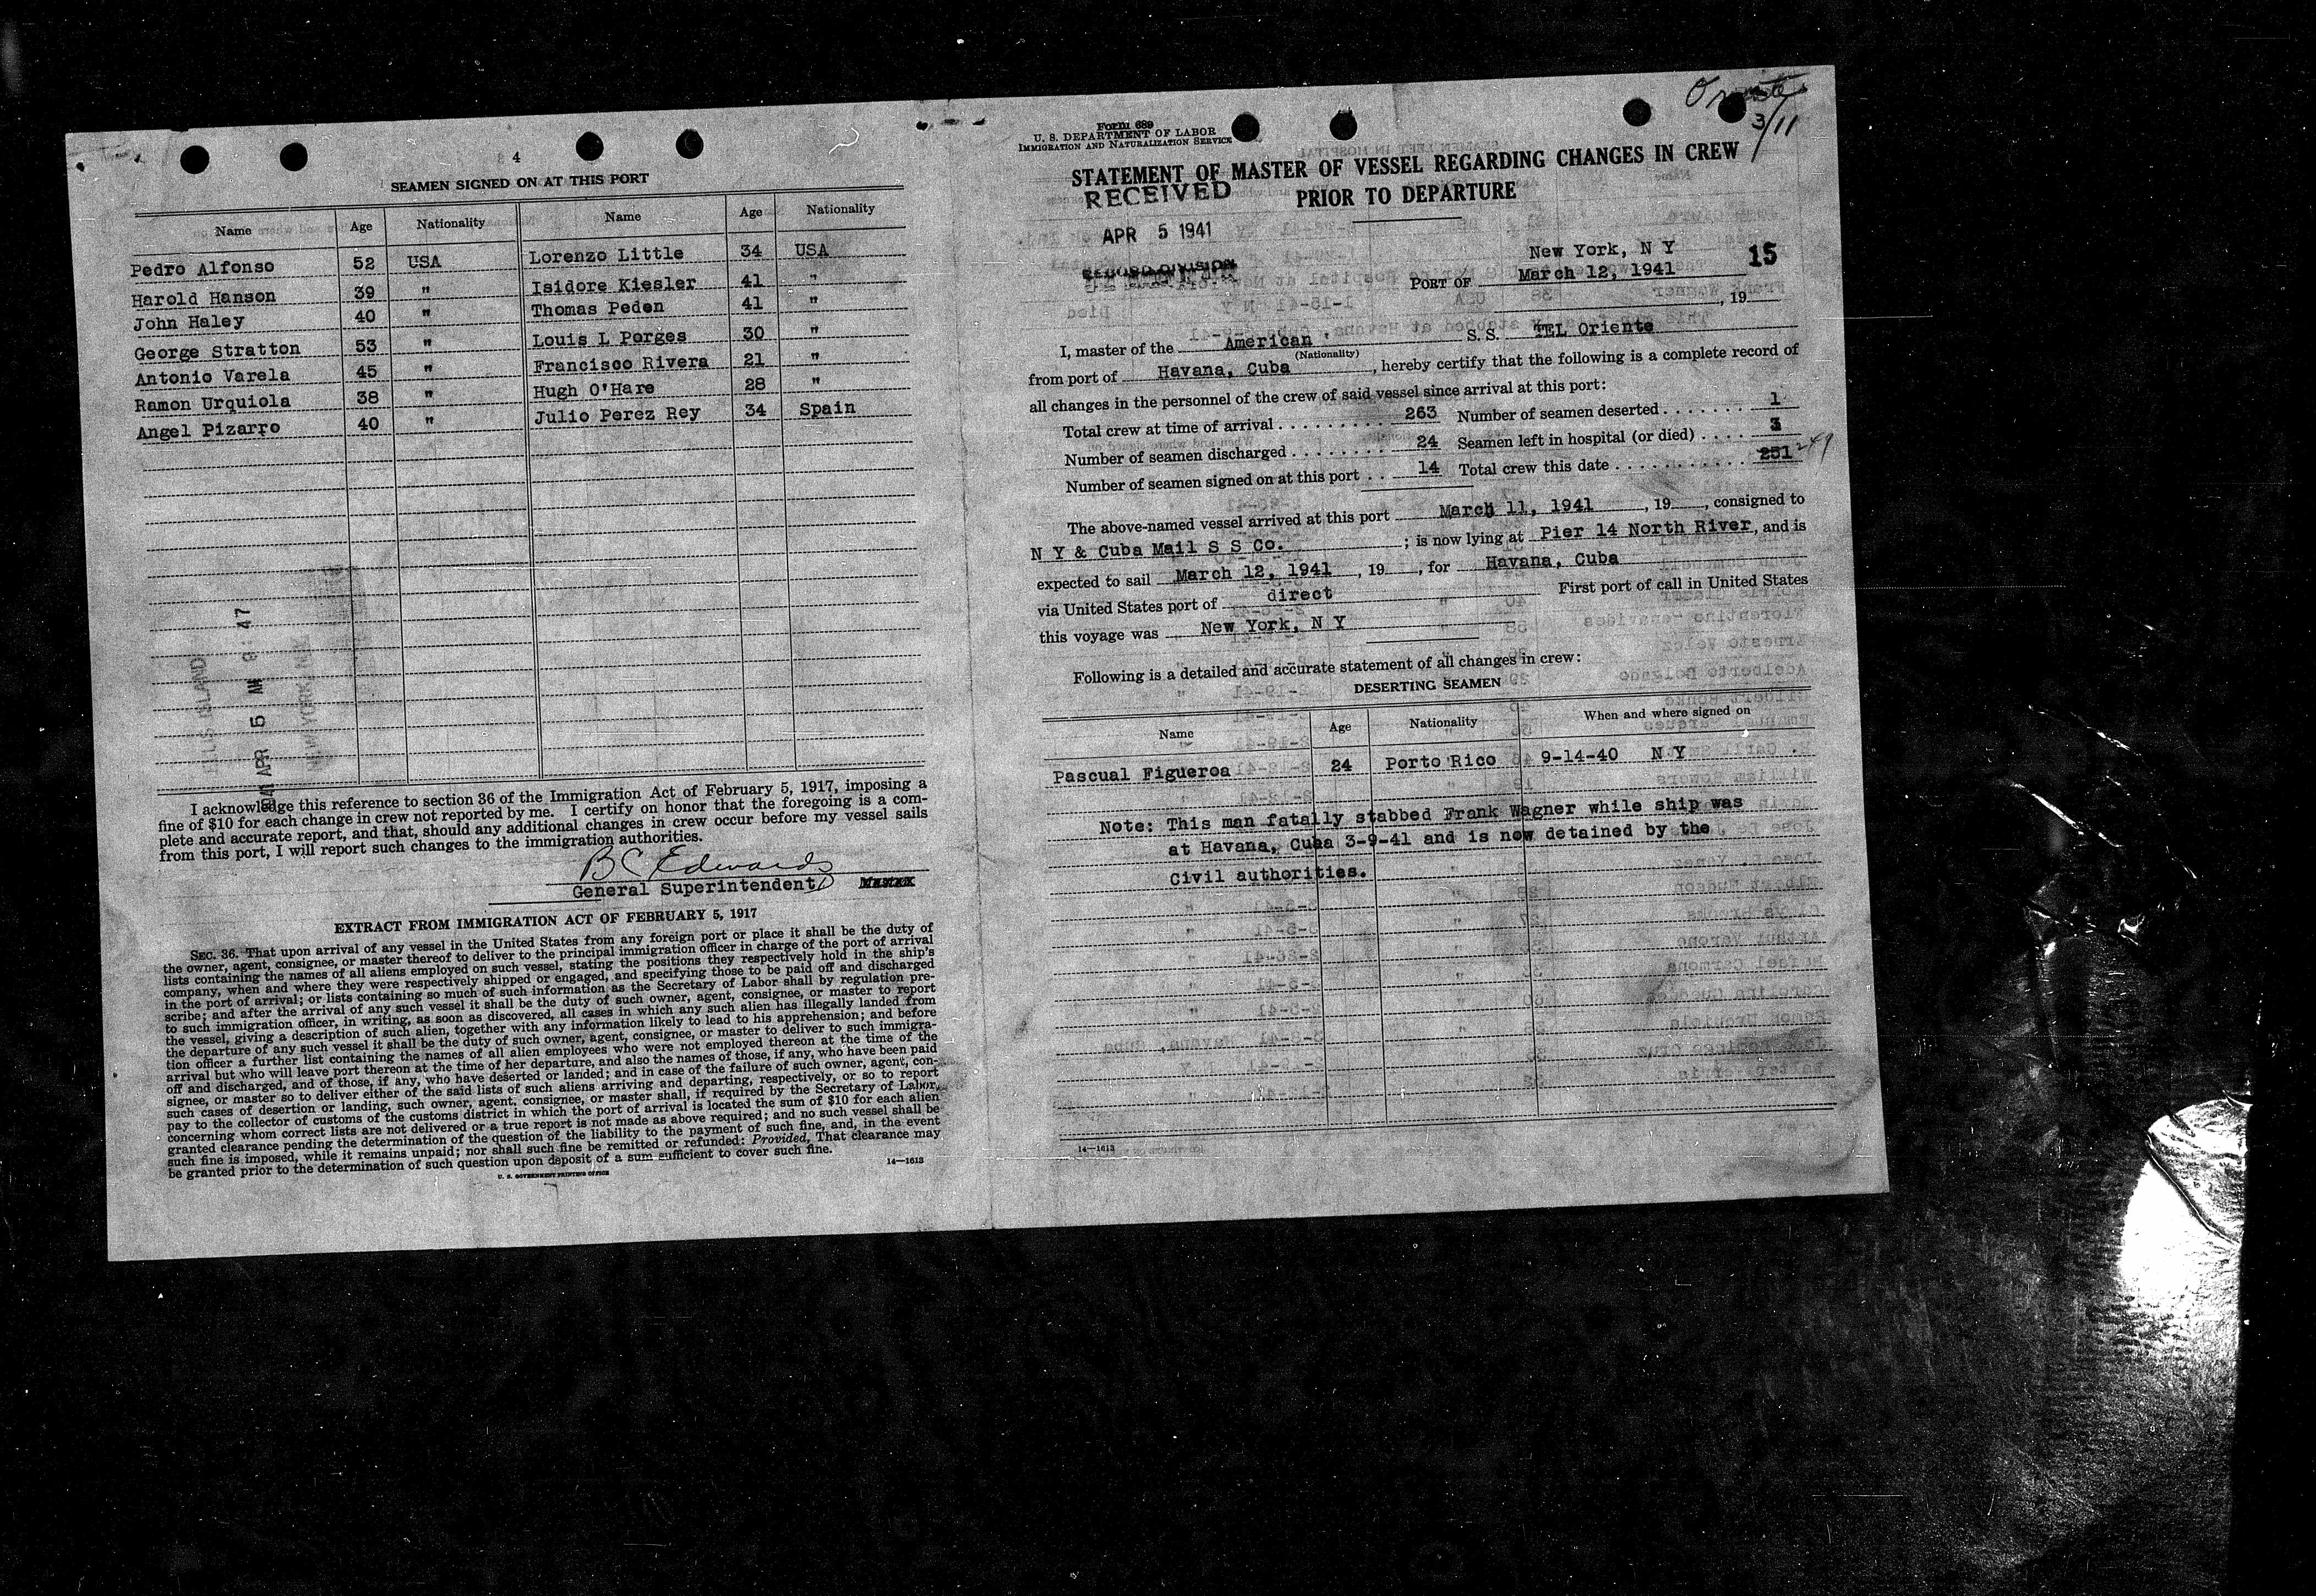 4
SEAMEN SIGNED ON AT THIS PORT
Name Age Nationality Name Age Nationality
Pedro Alfonso 52 USA Lorenzo Little 34 USA
Harold Hanson 39 " Isidore Kiesler 41 "
John Haley 40 " Thomas Peden 41 "
George Stratton 53 " Louis L Porges 30 "
Antonio Varela 45 " Francisco Rivera 21 "
Ramon Urquiola 38 " Hugh O'Hare 28 "
Angel Pizarro 40 " Julio Perez Rey 34 Spain
ELLIS ISLAND
1941 APR 5 AM 9:47
NEW YORK, N.Y.
I acknowledge this reference to section 36 of the Immigration Act of February 5, 1917, imposing a
fine of $10 for each change in crew not reported by me. I certify on honor that the foregoing is a com-
plete and accurate report, and that, should any additional changes in crew occur before my vessel sails
from this port, I will report such changes to the immigration authorities.
B C Edwards
General Superintendent Master
EXTRACT FROM IMMIGRATION ACT OF FEBRUARY 5, 1917
SEC. 36. That upon arrival of any vessel in the United States from any foreign port or place it shall be the duty of
the owner, agent, consignee, or master thereof to deliver to the principal immigration officer in charge of the port of arrival
lists containing the names of all aliens employed on such vessel, stating the positions they respectively hold in the ship's
company, when and where they were respectively shipped or engaged, and specifying those to be paid off and discharged
in the port of arrival; or lists containing so much of such information as the Secretary of Labor shall by regulation pre-
scribe; and after the arrival of any such vessel it shall be the duty of such owner, agent, consignee, or master to report
to such immigration officer, in writing, as soon as discovered, all cases in which any such alien has illegally landed from
the vessel, giving a description of such alien, together with any information likely to lead to his apprehension; and before
the departure of any such vessel it shall be the duty of such owner, agent, consignee, or master to deliver to such immigra-
tion officer a further list containing the names of all alien employees who were not employed thereon at the time of the
arrival but who will leave port thereon at the time of her departure, and also the names of those, if any, who have been paid
off and discharged, and of those, if any, who have deserted or landed; and in case of the failure of such owner, agent, con-
signee, or master so to deliver either of the said lists of such aliens arriving and departing, respectively, or so to report
such cases of desertion or landing, such owner, agent, consignee, or master shall, if required by the Secretary of Labor,
pay to the collector of customs of the customs district in which the port of arrival is located the sum of $10 for each alien
concerning whom correct lists are not delivered or a true report is not made as above required; and no such vessel shall be
granted clearance pending the determination of the question of the liability to the payment of such fine, and, in the event
such fine is imposed, while it remains unpaid; nor shall such fine be remitted or refunded: Provided, That clearance may
be granted prior to the determination of such question upon deposit of a sum sufficient to cover such fine.
U. S. GOVERNMENT PRINTING OFFICE 14—1613
Oriente
3/11
Form 689
U. S. DEPARTMENT OF LABOR
IMMIGRATION AND NATURALIZATION SERVICE
STATEMENT OF MASTER OF VESSEL REGARDING CHANGES IN CREW
PRIOR TO DEPARTURE
RECEIVED
APR 5 1941
RECORD DIVISION
New York, N Y 15
PORT OF March 12, 1941
, 19
I, master of the American S. S. TEL Oriente
(Nationality)
from port of Havana, Cuba, hereby certify that the following is a complete record of
all changes in the personnel of the crew of said vessel since arrival at this port:
Total crew at time of arrival 263 Number of seamen deserted 1
Number of seamen discharged 24 Seamen left in hospital (or died) 3
Number of seamen signed on at this port 14 Total crew this date 251 249
The above-named vessel arrived at this port March 11, 1941, 19, consigned to
N Y & Cuba Mail S S Co. ; is now lying at Pier 14 North River, and is
expected to sail March 12, 1941, 19, for Havana, Cuba
via United States port of direct First port of call in United States
this voyage was New York, N Y
Following is a detailed and accurate statement of all changes in crew:
DESERTING SEAMEN
Name Age Nationality When and where signed on
Pascual Figueroa 24 Porto Rico 9-14-40 N Y
Note: This man fatally stabbed Frank Wagner while ship was
at Havana, Cuba 3-9-41 and is now detained by the
Civil authorities.
14—1613